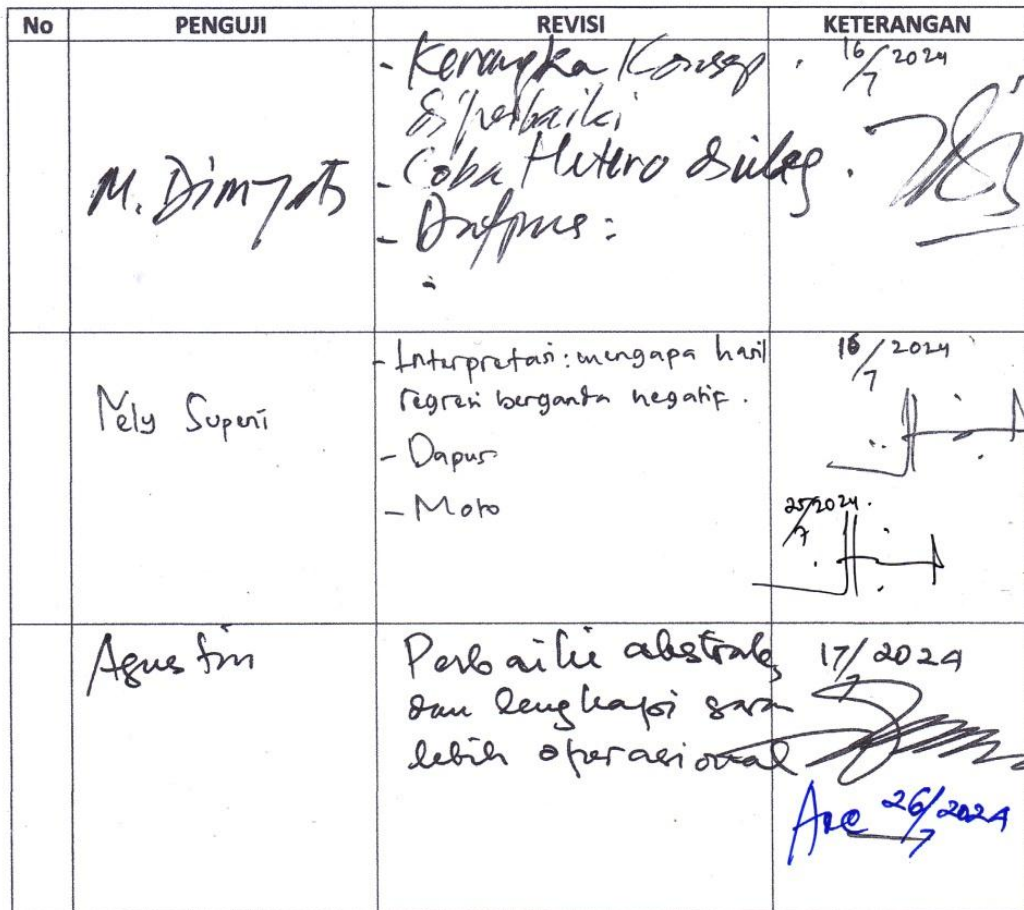 No PENGUJI REVISI KETERANGAN
M. Dimyati
- Kerangka Konsep .
diperbaiki
- Coba Hetero diuleg .
- Dafpus :
16/7 2024
Nely Supeni
- Interpretasi : mengapa hasil
regresi berganda negatif .
- Dapus
- Moto
16/7 2024
25/7 2024 .
Agustin
Perbaiki abstrak
dan lengkapi saran
lebih operasional
17/7 2024
Acc 26/7 2024